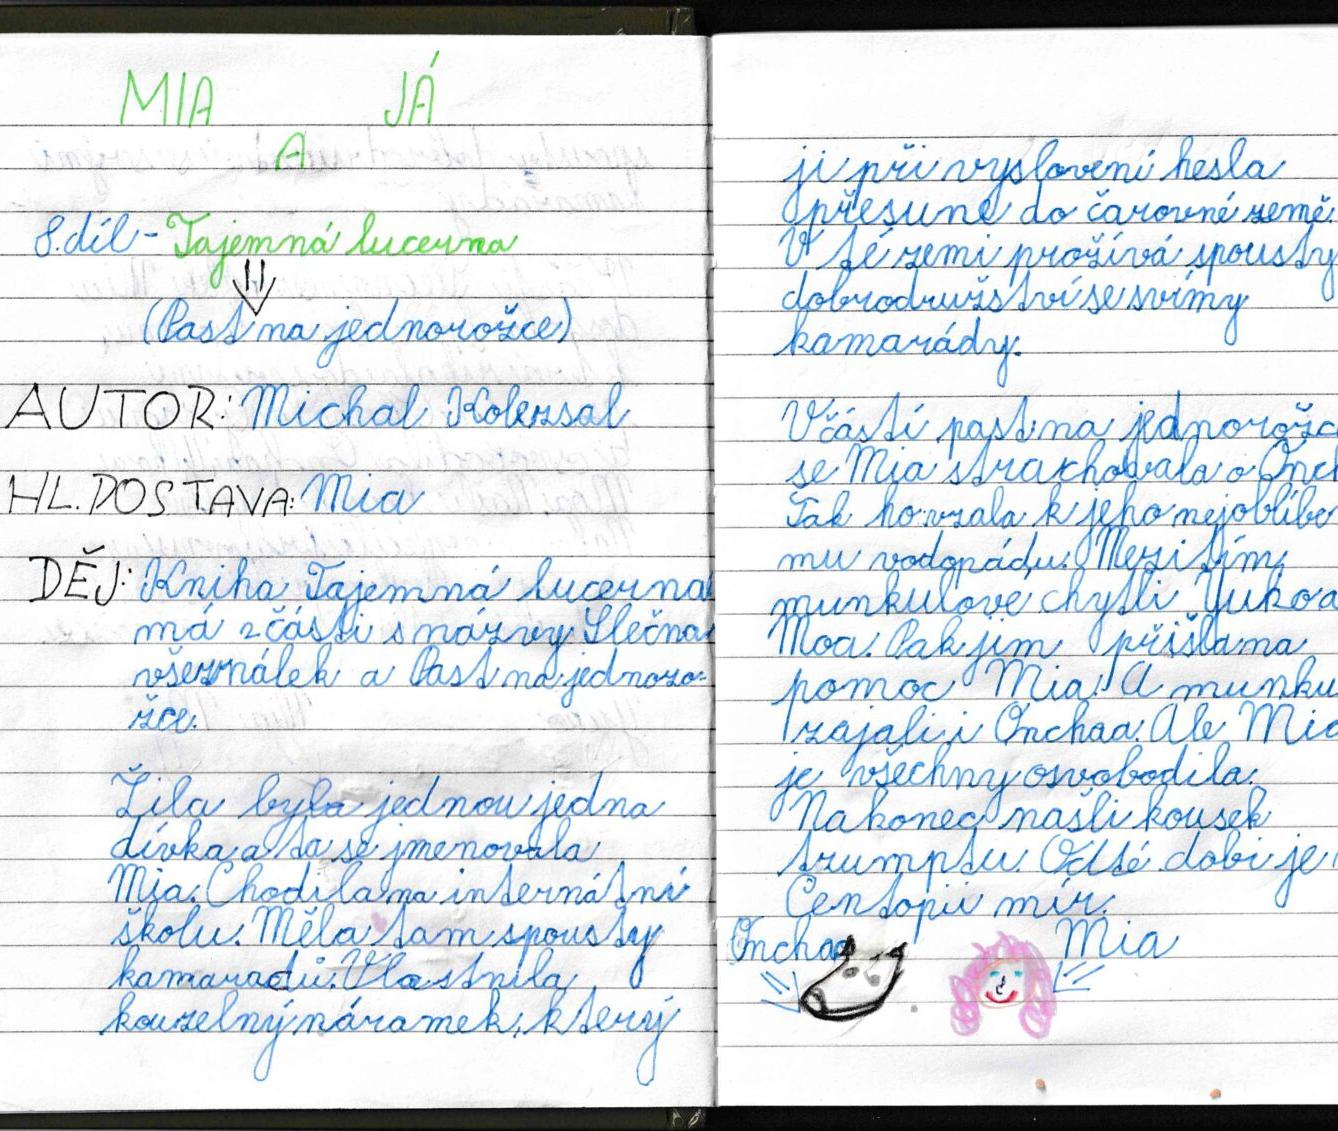 MIA JÁ
A
8. díl - Tajemná lucerna
(Past na jednorožce)
AUTOR: Michal Kolezsal
HL. POSTAVA: Mia
DĚJ: Kniha Tajemná lucerna
má 2 části s názvy Slečna
všeználek a Past na jednoro-
žce.
Žila byla jednou jedna
dívka a ta se jmenovala
Mia. Chodila na internátní
školu. Měla tam spousty
kamaradů. Vlastnila
kouzelný náramek, který
ji při vyslovení hesla
přesune do čarovné země.
V té zemi prožívá spousty
dobrodružství se svímy
kamarády.
V části past na jednorožc
se Mia strachovala o Onch
Tak ho vzala k jeho nejoblíbe
mu vodopádu. Mezi tím
munkulove chytli Yuko a
Moa. Pak jim přišla na
pomoc Mia. A munku
zajali i Onchaa. Ale Mia
je všechny osvobodila.
Nakonec našli kousek
trumptu. Od té dobi je
Centopii mír.
Onchao Mia